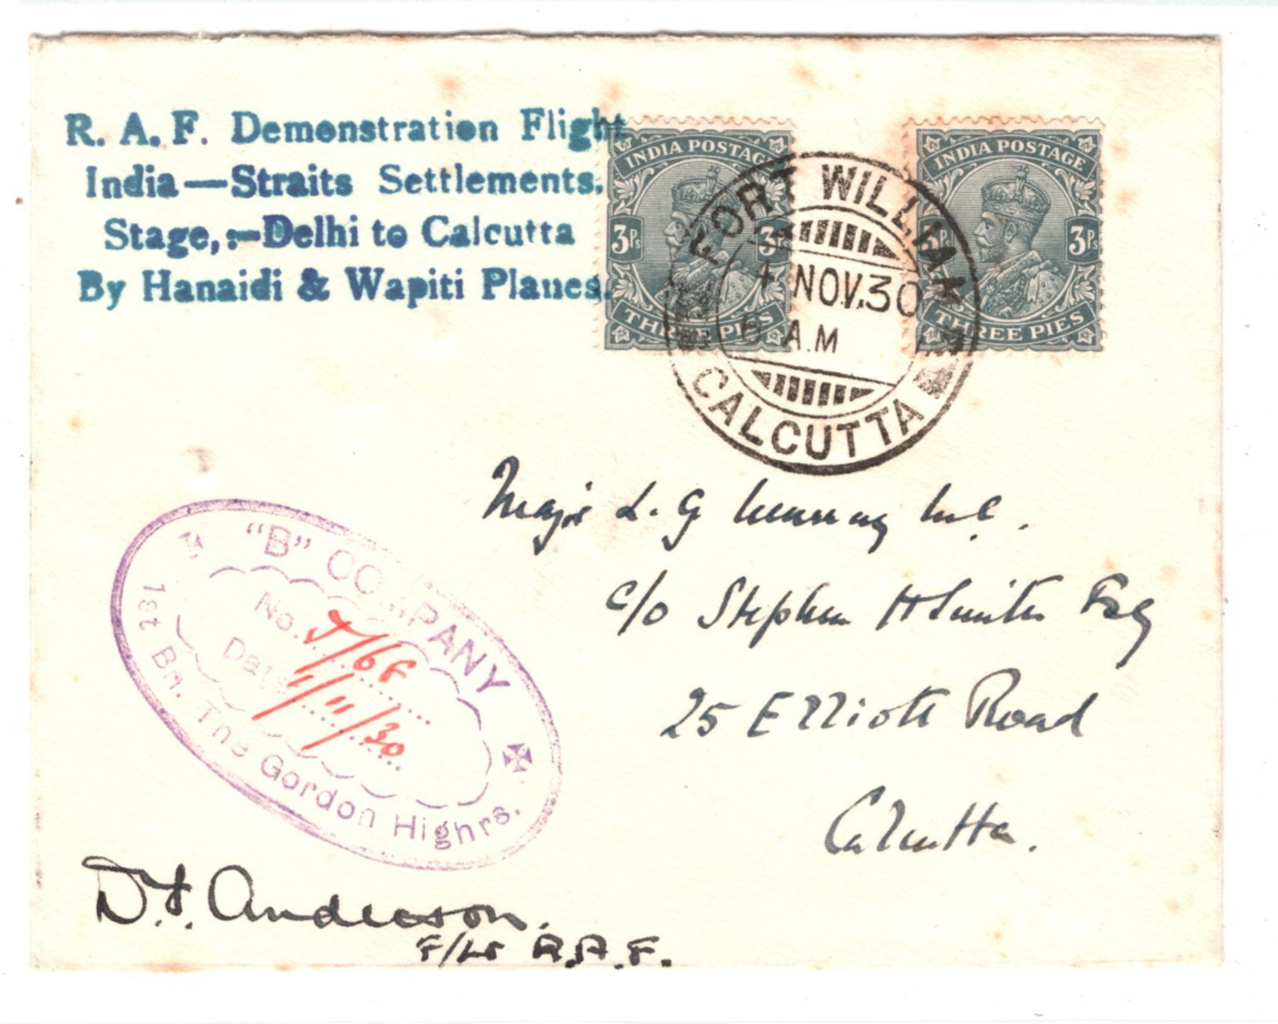 R. A. F. Demonstration Flight
India—Straits Settlements.
Stage,:—Delhi to Calcutta
By Hanaidi & Wapiti Planes.
INDIA POSTAGE
3Ps 3Ps
THREE PIES
INDIA POSTAGE
3Ps 3Ps
THREE PIES
FORT WILLIAM
4 NOV.30
A.M
CALCUTTA
Major L. G Murray M.C.
c/o Stephen H Smith Esq
25 Elliott Road
Calcutta.
"B" COMPANY
No. J/68
Date 1/11/30
1st Bn. The Gordon Highrs.
D.F. Anderson.
F/Lt R.A.F.